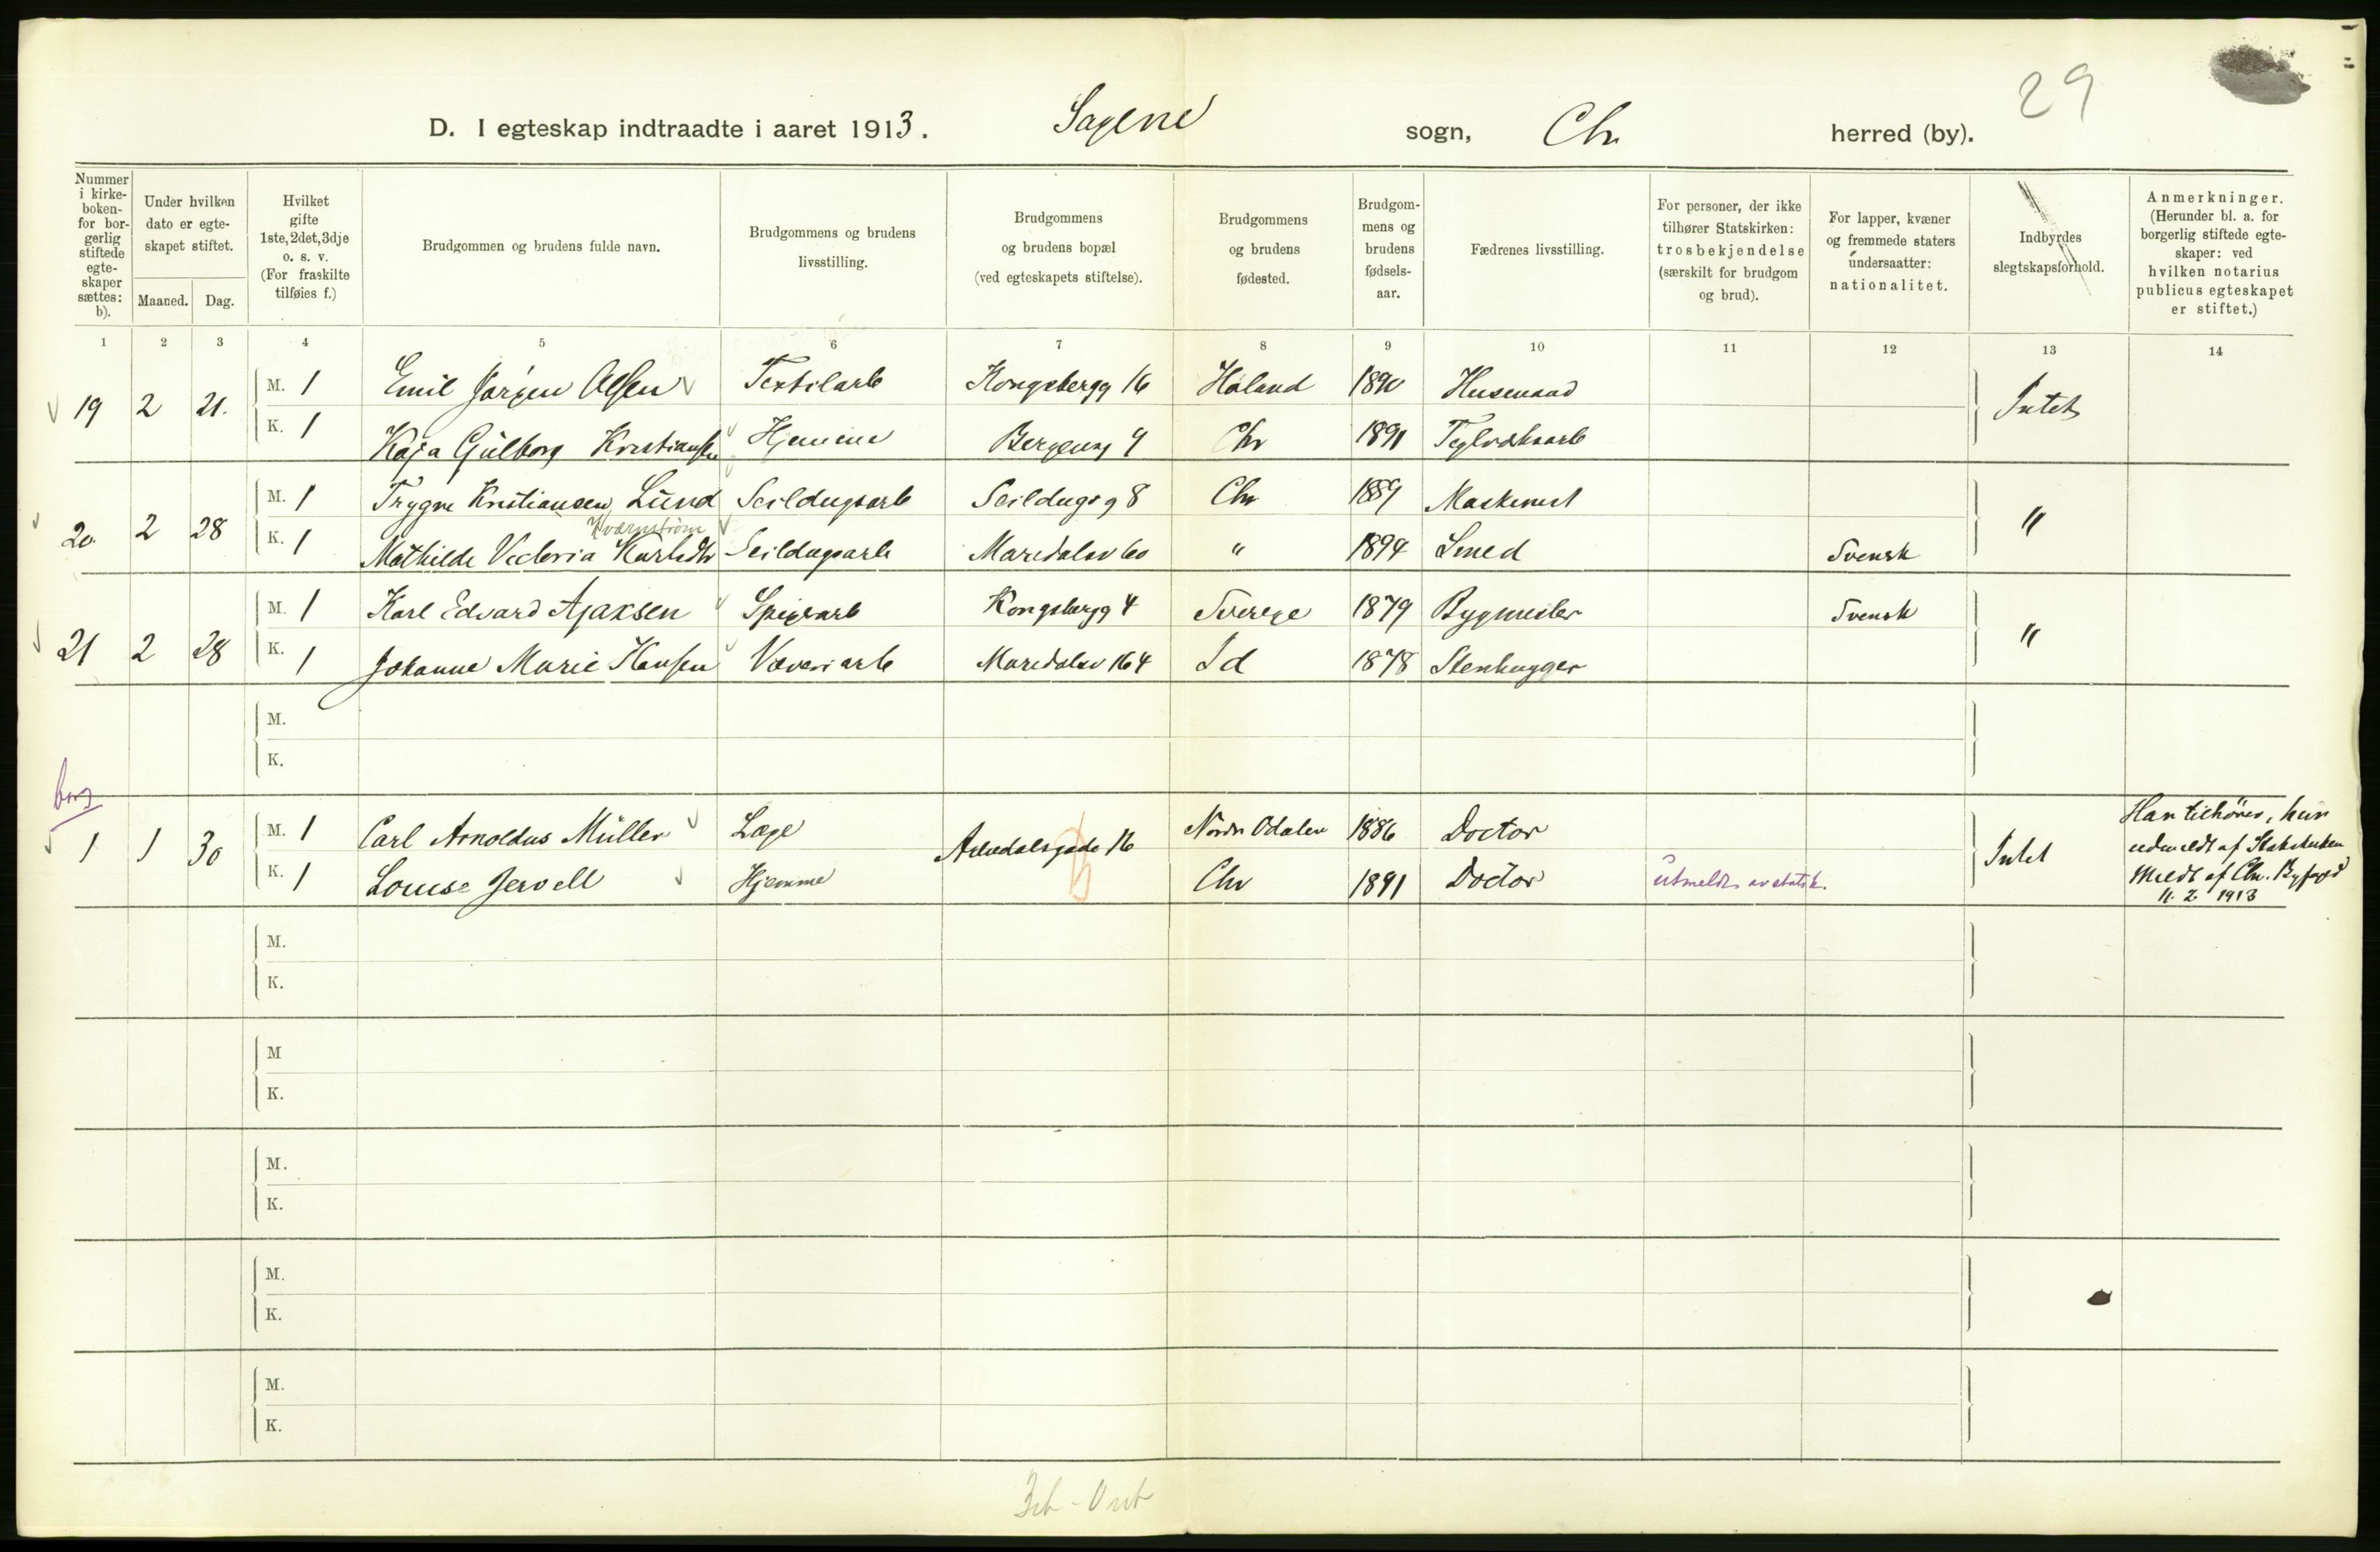 29
D. I egteskap indtraadte i aaret 1913. Sagene sogn, Chr herred (by).
Nummer i kirke-boken- for bor-gerlig stiftede egte-skaper sættes: b).
Under hvilken dato er egte-skapet stiftet.
Maaned. Dag.
Hvilket gifte 1ste, 2det, 3dje o. s. v. (For fraskilte tilføies f.)
Brudgommen og brudens fulde navn.
Brudgommens og brudens livsstilling.
Brudgommens og brudens bopæl (ved egteskapets stiftelse).
Brudgommens og brudens fødested.
Brudgom-mens og brudens fødsels-aar.
Fædrenes livsstilling.
For personer, der ikke tilhører Statskirken: trosbekjendelse (særskilt for brudgom og brud).
For lapper, kvæner og fremmede staters undersaatter: nationalitet.
Indbyrdes slegtskapsforhold.
Anmerkninger. (Herunder bl. a. for borgerlig stiftede egte-skaper: ved hvilken notarius publicus egteskapet er stiftet.)
1 2 3 4 5 6 7 8 9 10 11 12 13 14
19 2 21. M. 1 Emil Jørgen Olsen Textilarb Kongsbergg 16 Høland 1890 Husmand Intet
K. 1 Kaja Gulborg Kristiansen Hjemme Bergensg 4 Chr 1891 Teglverksarb
20 2 28 M. 1 Trygve Kristiansen Lund Seildugsarb Seildugsg 8 Chr 1889 Maskinist "
Kværnstrøm
K. 1 Mathilde Victoria Karlsdtr Seildugsarb Maridalsv 60 " 1894 Smed Svensk
21 2 28 M. 1 Karl Edvard Ajaxsen Spigerarb Kongsbergg 4 Sverige 1879 Bygmester Svensk "
K. 1 Johanne Marie Hansen Væveriarb Maridalsv 164 Id 1878 Stenhugger
M.
K.
borg
1 1 30 M. 1 Carl Arnoldus Müller Læge Arendalsgade 16 Nordr Odalen 1886 Doctor Intet Han tilhører, hun
udmeldt af Statskirken
K. 1 Louise Jervell Hjemme Chr 1891 Doctor utmeldt av statsk. Meldt af Chr. Byfoged
11. 2 1913
M.
K.
M
K.
M.
K.
M.
K.
M.
K.